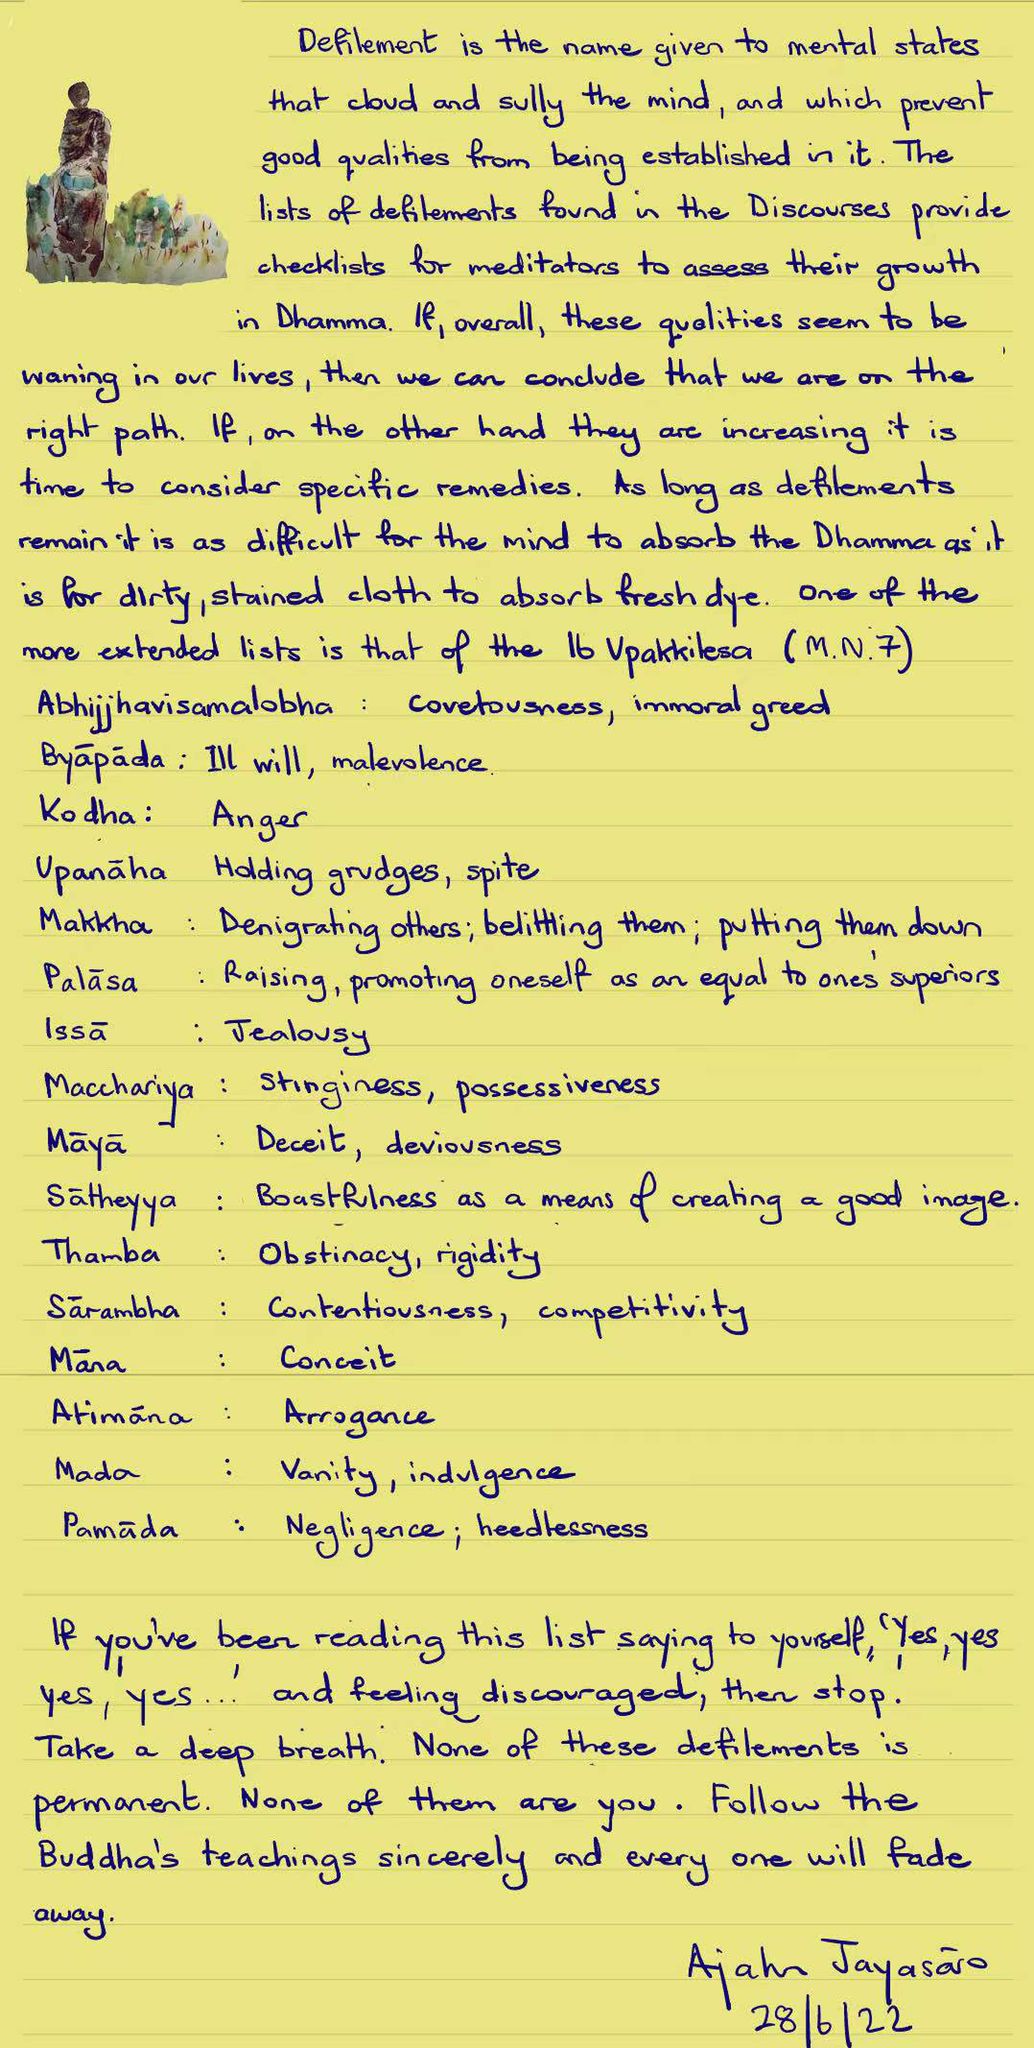 Defilement is the name given to mental states
that cloud and sully the mind, and which prevent
good qualities from being established in it. The
lists of defilements found in the Discourses provide
checklists for meditators to assess their growth
in Dhamma. If, overall, these qualities seem to be
waning in our lives, then we can conclude that we are on the
right path. If, on the other hand they are increasing it is
time to consider specific remedies. As long as defilements
remain it is as difficult for the mind to absorb the Dhamma as it
is for dirty, stained cloth to absorb fresh dye. One of the
more extended lists is that of the 16 Upakkilesa (M.N.7)
Abhijjhavisamalobha : Covetousness, immoral greed
Byāpāda : Ill will, malevolence.
Kodha: Anger
Upanāha Holding grudges, spite
Makkha : Denigrating others; belittling them; putting them down
Palāsa : Raising, promoting oneself as an equal to one's superiors
Issā : Jealousy
Macchariya : Stinginess, possessiveness
Māyā : Deceit, deviousness
Sātheyya : Boastfulness as a means of creating a good image.
Thamba : Obstinacy, rigidity
Sārambha : Contentiousness, competitivity
Māna : Conceit
Atimāna : Arrogance
Mada : Vanity, indulgence
Pamāda : Negligence; heedlessness
If you've been reading this list saying to yourself, 'Yes, yes
yes, yes...' and feeling discouraged, then stop.
Take a deep breath. None of these defilements is
permanent. None of them are you. Follow the
Buddha's teachings sincerely and every one will fade
away.
Ajahn Jayasāro
28/6/22